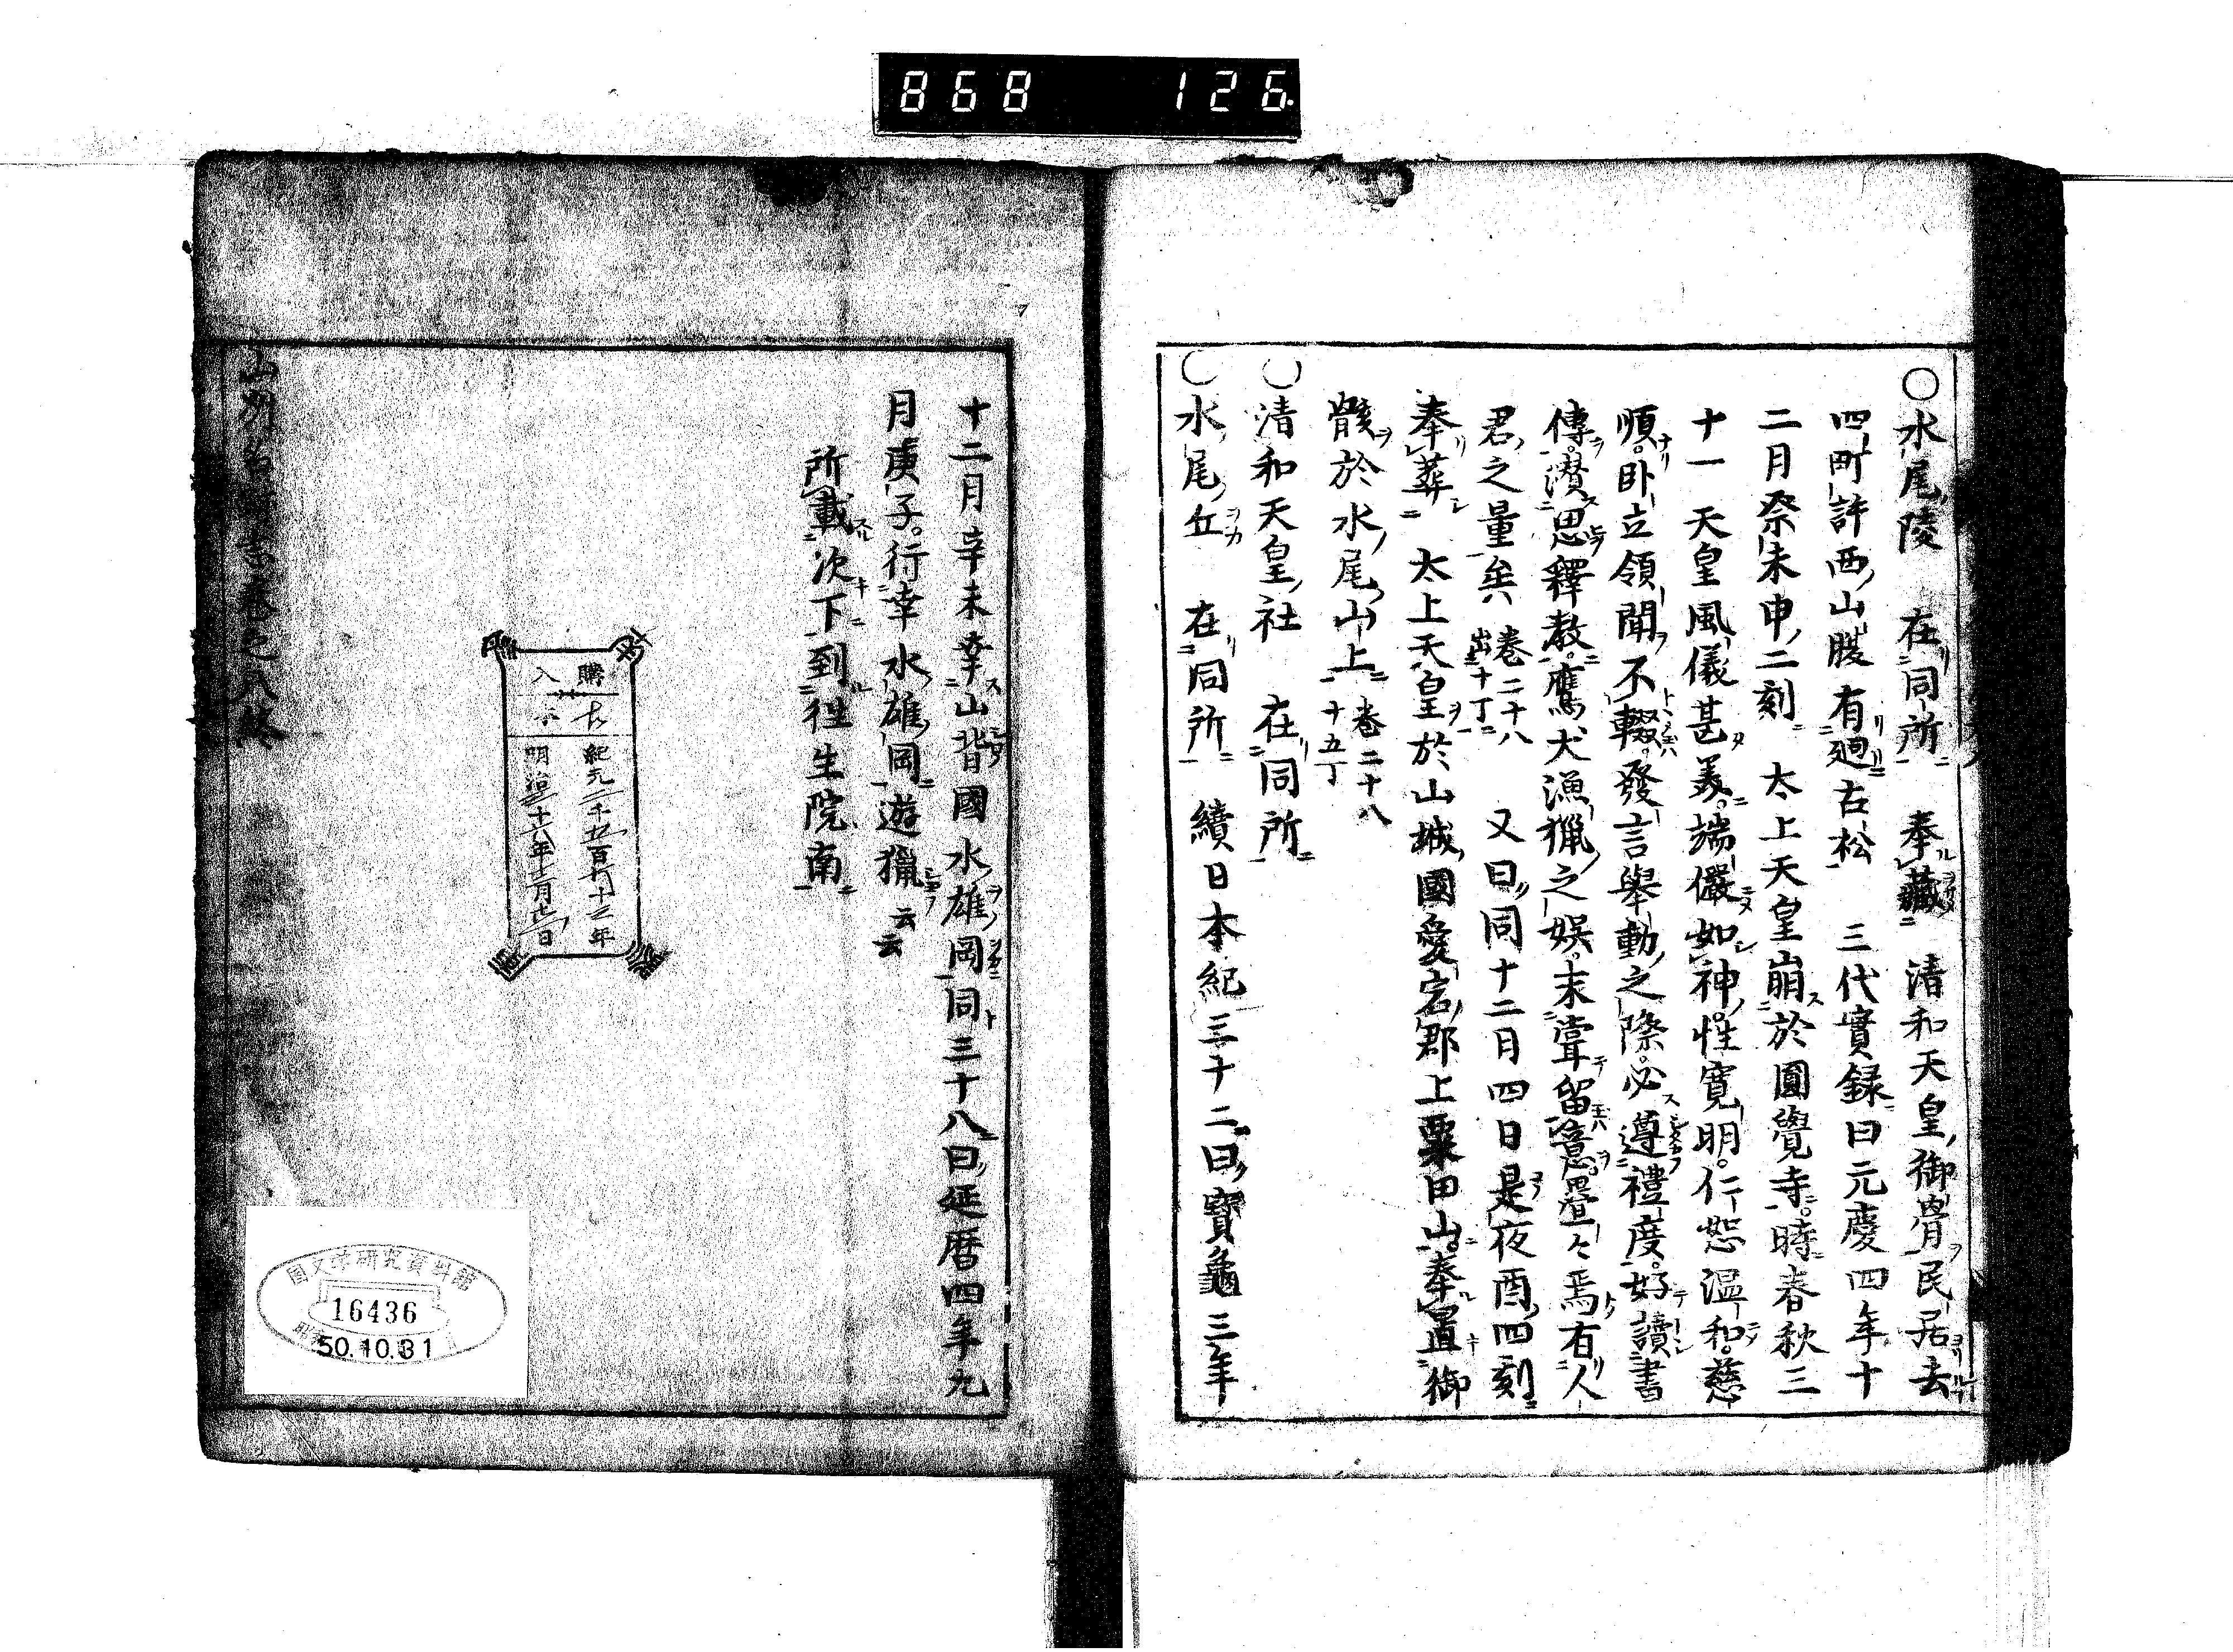 868 126
○水尾陵 在同所 奉藏 清和天皇御骨民居去
四町許西山腰有廻古松 三代實録曰元慶四年十
二月癸未申二刻 太上天皇崩於圓覺寺時春秋三
十一 天皇風儀甚美端儼如神性寛明仁恕温和慈
順卧立領聞不輟發言舉動之際必遵禮度好讀書
傳潜思釋教鷹犬漁獵之娯未甞留意亹々焉有人
君之量矣 巻二十八 四十丁 又曰同十二月四日是夜酉四刻
奉葬 太上天皇於山城國愛宕郡上粟田山奉置御
骸於水尾山上 巻二十八 十五丁
○清和天皇社 在同所
○水尾丘 在同所 續日本紀三十二曰寶龜三年
十二月辛未幸山背國水雄岡同三十八曰延暦四年九
月庚子行幸水雄岡遊獵云云
所載次下到往生院南
購入
紀元二千五百 十三年
明治二十六年十二月 日
山州名 志巻之八終
國文学研究資料館
16436
50.10.31